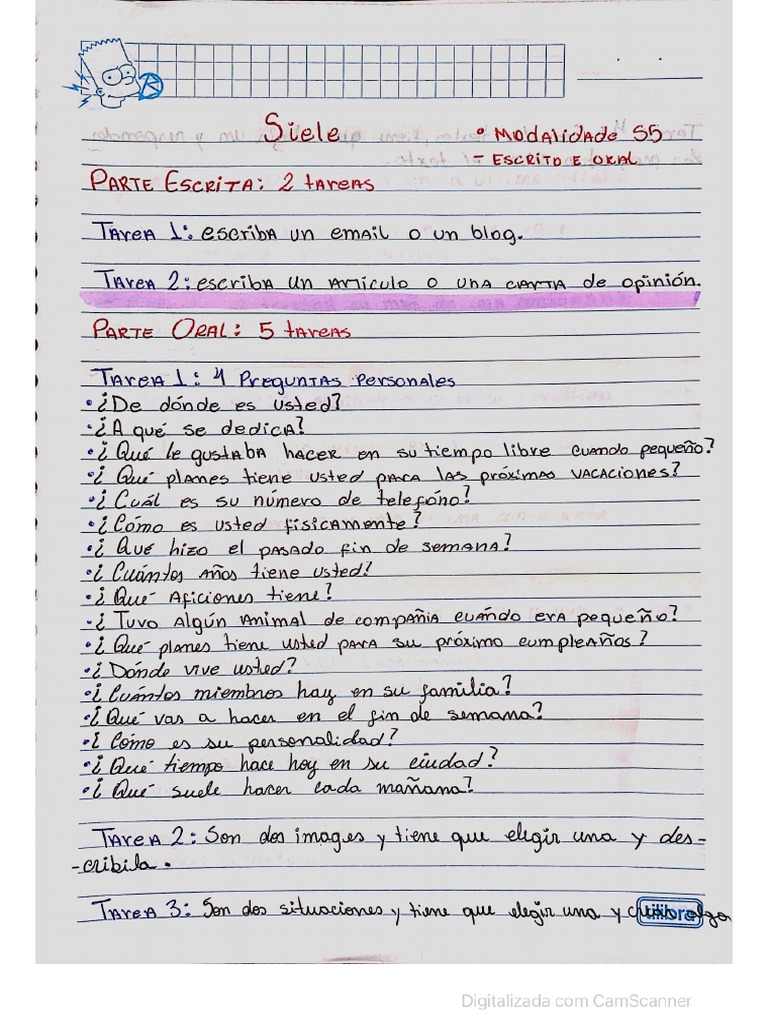 Siele
• Modalidade S5
- Escrito e oral
Parte Escrita: 2 tareas
Tarea 1: escriba un email o un blog.
Tarea 2: escriba un artículo o una carta de opinión.
Parte Oral: 5 tareas
Tarea 1: 4 Preguntas Personales
• ¿De dónde es usted?
• ¿A qué se dedica?
• ¿Qué le gustaba hacer en su tiempo libre cuando pequeño?
• ¿Qué planes tiene usted para las próximas vacaciones?
• ¿Cuál es su número de telefóno?
• ¿Cómo es usted físicamente?
• ¿Qué hizo el pasado fin de semana?
• ¿Cuántos años tiene usted?
• ¿Qué aficiones tiene?
• ¿Tuvo algún animal de compañia cuándo era pequeño?
• ¿Qué planes tiene usted para su próximo cumpleaños?
• ¿Dónde vive usted?
• ¿Cuántos miembros hay en su familia?
• ¿Qué vas a hacer en el fin de semana?
• ¿Cómo es su personalidad?
• ¿Qué tiempo hace hoy en su ciudad?
• ¿Qué suele hacer cada mañana?
Tarea 2: Son dos images y tiene que elegir una y des-
-cribila.
Tarea 3: Son dos situaciones y tiene que elegir una y algo
tilibra
Digitalizada com CamScanner